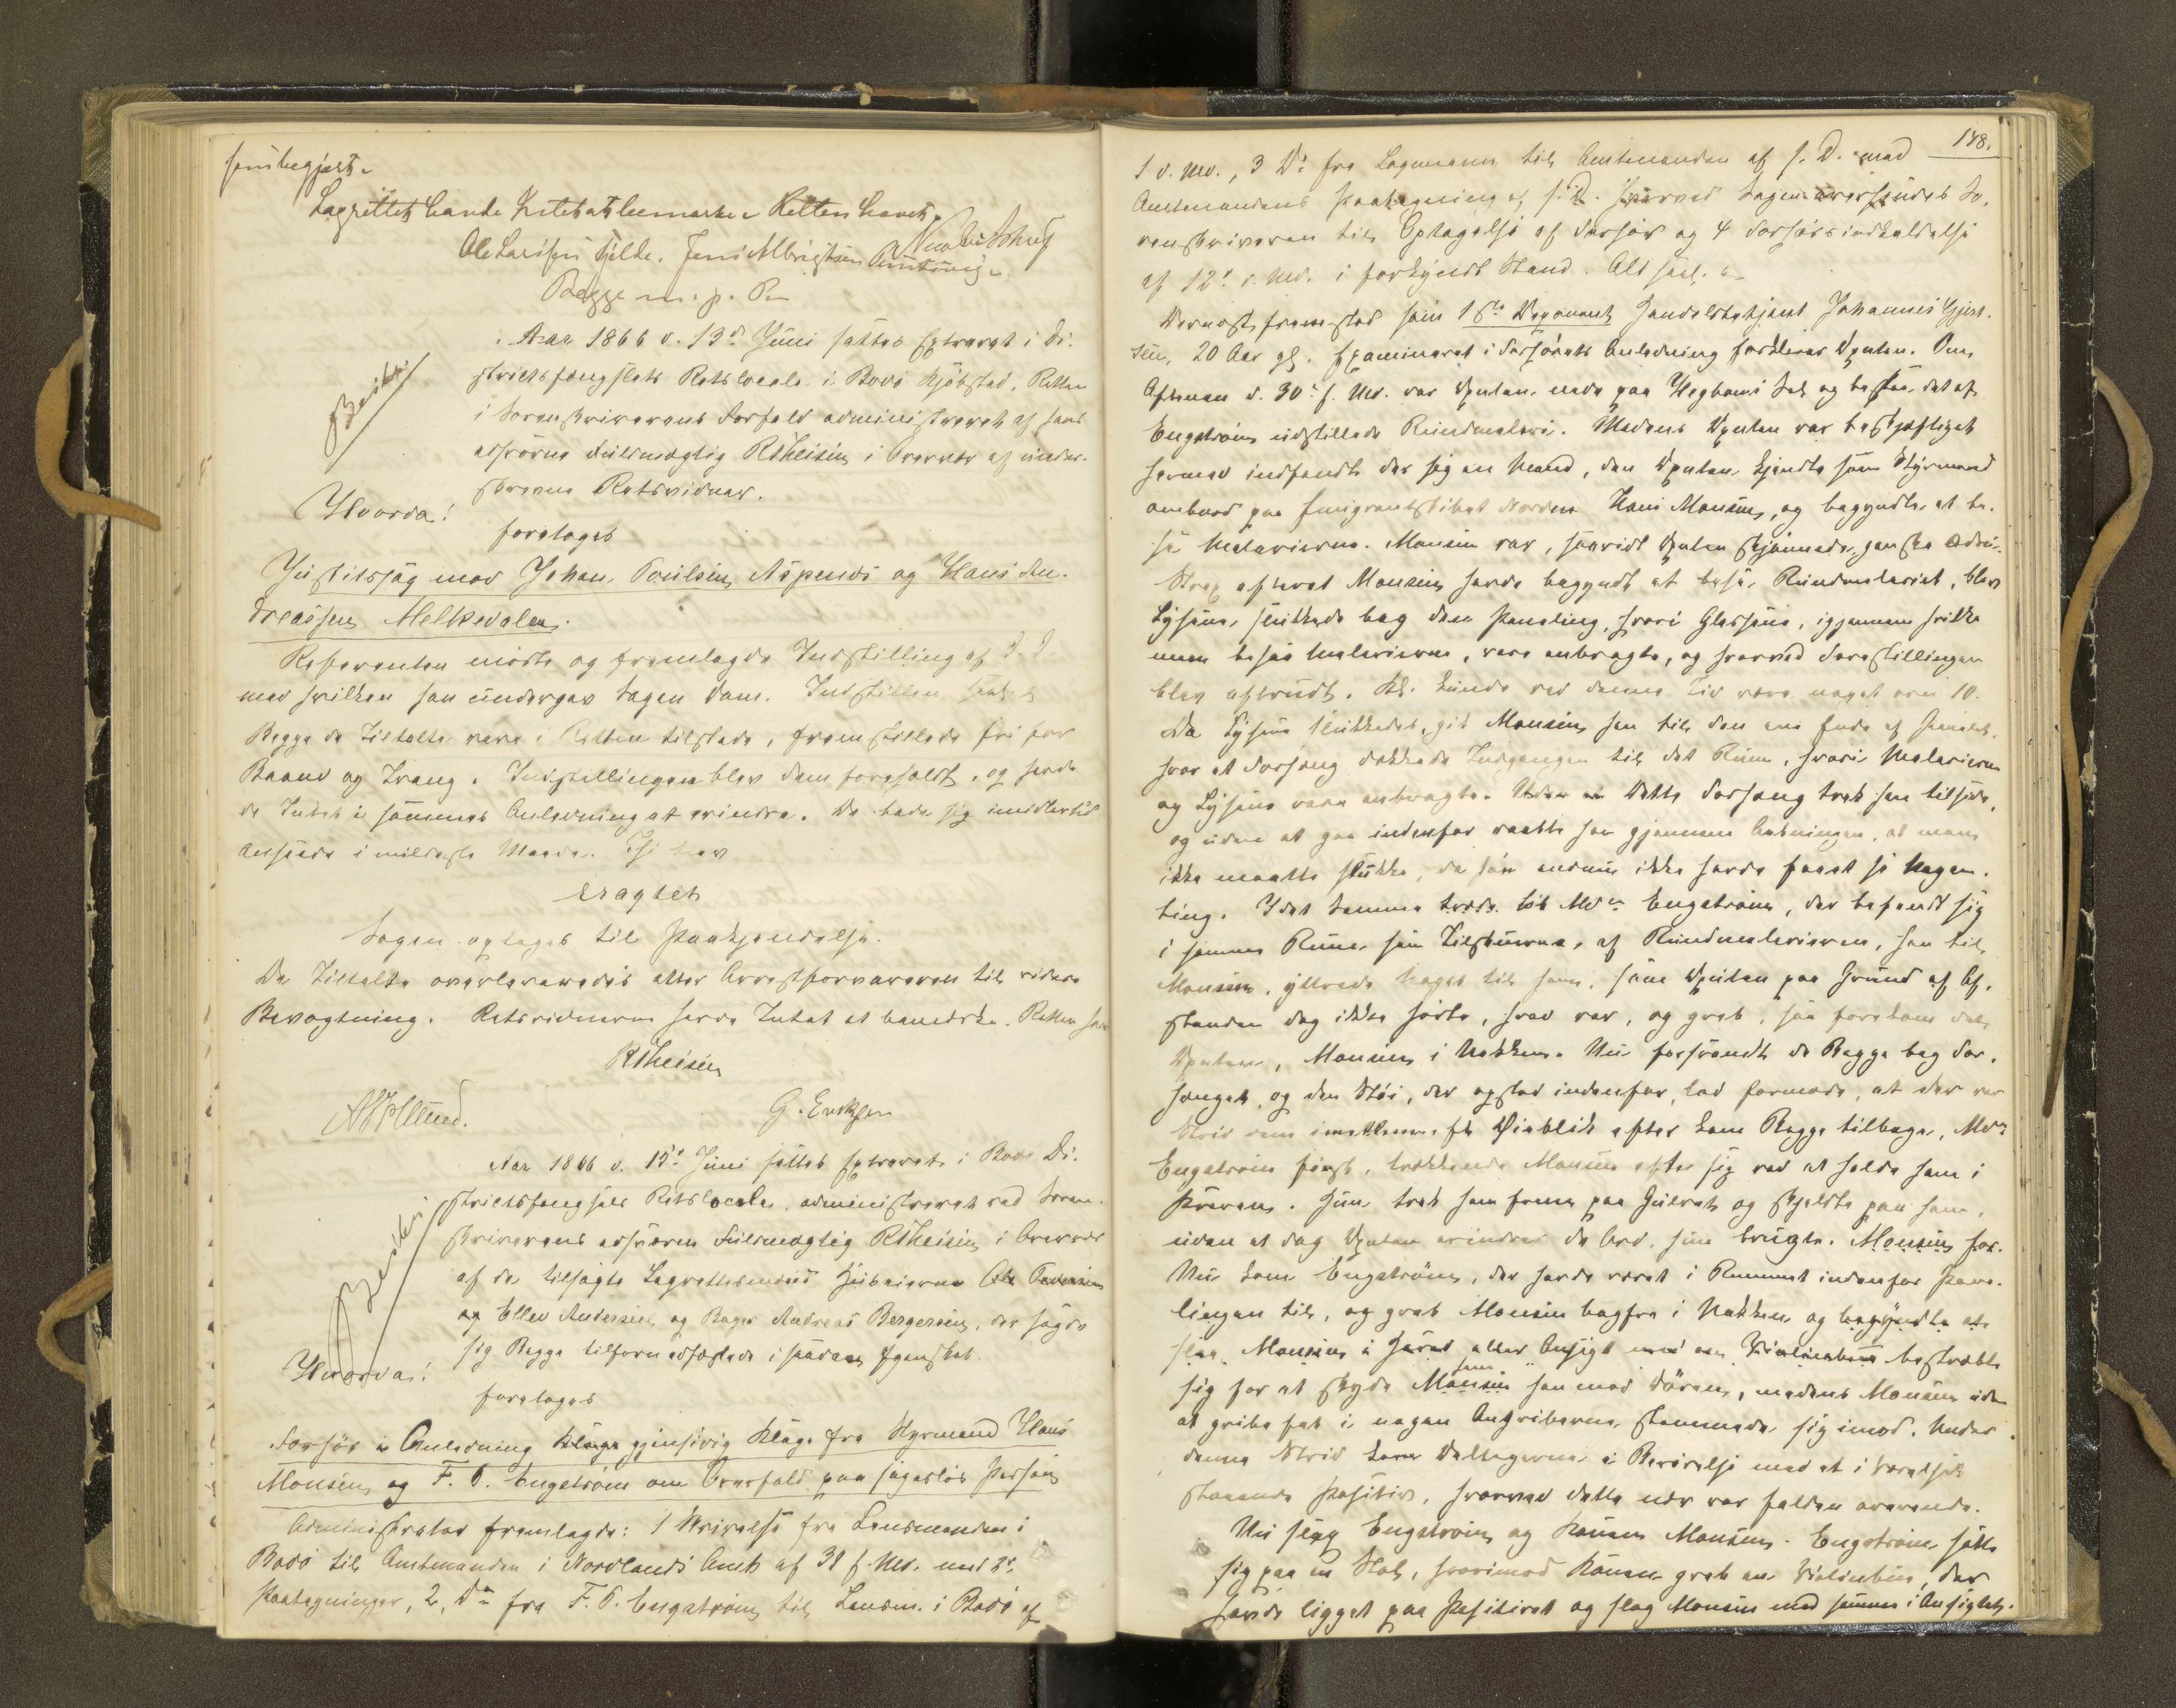 som begjært.
Lagrettet havde Intet at bemærke. Retten hævet.
Ole Larssen Hjelte. Jens Albrigtsen
Begge m. p. P.
Aar 1866 d. 13de Juni sattes Extraret i Di-
strictsfængslets Retslocale i Bodø Kjøbstad. Retten
i Sorenskriverens Forfald administreret af hans
edsvorne Fuldmægtig RTheisen i Overvær af under-
skrevne Retsvidner.
Beskr.
Hvorda:
foretoges
Justitssag mod Johan Poulsen Aspenes og Hans An-
dreassen Melkedalen.
Referenten mødte og fremlagde Indstilling af D. D.
med hvilken han undergav Sagen Dom. Indstillen
Begge de Tiltalte vare i Retten tilstede, fremstillede fri for
Baand og Tvang. Indstillingen blev dem foreholdt, og havde
de Intet i sammes Anledning at erindre. De bade sig imidlertid
anseede i mildeste Maade. Thi blev
eragtet
Sagen optages til Paakjendelse.
De Tiltalte overleveredes atter Arrestforvareren til videre
Bevogtning. Retsvidnerne havde Intet at bemærke. Retten hæv
RTheisen
G. Erichsen
Aar 1866 d. 15de Juni sattes Extraret i Bodø Di-
strictsfængsels Retslocale, administreret ved Soren-
skriverens edsvoren Fuldmægtig RTheisen i Overvær
af de tilsagte Lagrettesmænd Huseierne Ole
og Ellev Andersen og Bager Andreas Bergersen, der sagde
sig Begge tilforn edfæstede i saadan Egenskab.
Beskr.
Hvorda:
foretoges
Forhør i Anledning Klage gjensidig Klage fra Styrmand Hans
Monsen og F. O. Engstrøm om Overfald paa sagesløs Person
Administrator fremlagde: 1 Skrivelse fra Lensmanden i
Bodø til Amtmanden i Nordlands Amt af 31 f. Md. med 2de
Paategninger, 2, Do fra F. O. Engstrøm til Lensm. i Bodø af
148.
1 d. Md., 3 Do fra Lagmann til Amtmanden af s. D. med
Amtmandens Paategning af s. D. hvorved Sagen oversendes So-
renskriveren til Optagelse af Forhør og 4 Forhørsindkaldelse
af 12te d. Md. i forkyndt Stand. Alt saal.
Dernæst fremstod som 1ste Deponent Handelsbetjent Johannes Gjert-
sen, 20 Aar gl. Examineret i Forhørets Anledning forklarer Dpnten. Om
Aftenen d. 30te f. Md. var Dpnten nede paa Hegboms Sal og besaae det af
Engstrøm udstillede Rundmaleri. Medens Dpnten var beskjæftiget
hermed indfandt der sig en Mand, den Dpnten kjendte som Styrmand
ombord paa Emigrantskibet Norden Hans Monsen, og begyndte at be-
se Malerierne. Monsen var, saavidt Dpnten skjønnede, ganske ædru.
Strax efterat Monsen havde begyndt at besee Rundmaleriet, blev
Lysene slukkede bag den Paneling, hvori Glassene, igjennem hvilke
man besaae Malerierne, vare anbragte, og hvorved Forestillingen
blev afbrudt. Kl. kunde ved denne Tid være noget over 10.
Da Lysene slukkedes, gik Monsen hen til den ene Ende af Panelet,
hvor et Forhæng dækkede Indgangen til det Rum, hvori Malerierne
og Lysene vare anbragte. Dette Forhæng trak han tilside,
og uden at gaa indenfor raabte han gjennem Aabningen, at man
ikke maatte slukke, da han endnu ikke havde faaet se Nogen-
ting. I det Samme løb Md. Engstrøm, der befandt sig
i samme Rum som Tilskuerne, af Rundmalerierne, hen til
Monsen, yttrede Noget til ham, som Dpnten paa Grund af Af-
standen dog ikke hørte, hvad var, og greb, saa forekom det
Dpnten, Monsen i Nakken. Nu forsvandt de Begge bag For-
hænget, og den Støi, der opstod indenfor, lod formode, at der var
Strid dem imellem. Et Øieblik efter kom Begge tilbage, Md.
Engstrøm først, trækkende Monsen efter sig ved at holde ham i
Kraven. Hun trak ham frem paa Gulvet og skjeldte paa ham,
uden at dog Dpnten erindrer de Ord, hun brugte. Monsen
Nu kom Engstrøm, der havde været i Rummet indenfor Pane-
lingen til, og greb Monsen bagfra i Nakken og begyndte at
slaa Monsen i Haaret eller Ansigt bestræbte
sig for at skyde Monsen hen mod Døren, medens Monsen uden
at gribe fat i nogen Angriberne stemmede sig imod. Under
denne Strid kom Deltagerne i Berørelse med et i Værelset
staaende Positiv, hvorved dette nær var falden overende.
Nu slog Engstrøm og Konen Monsen. Engstrøm satte
sig paa en Stol, hvorimod Konen greb en Violinbue, der
havde ligget paa Positivet og slog Monsen med samme i Ansigtet.